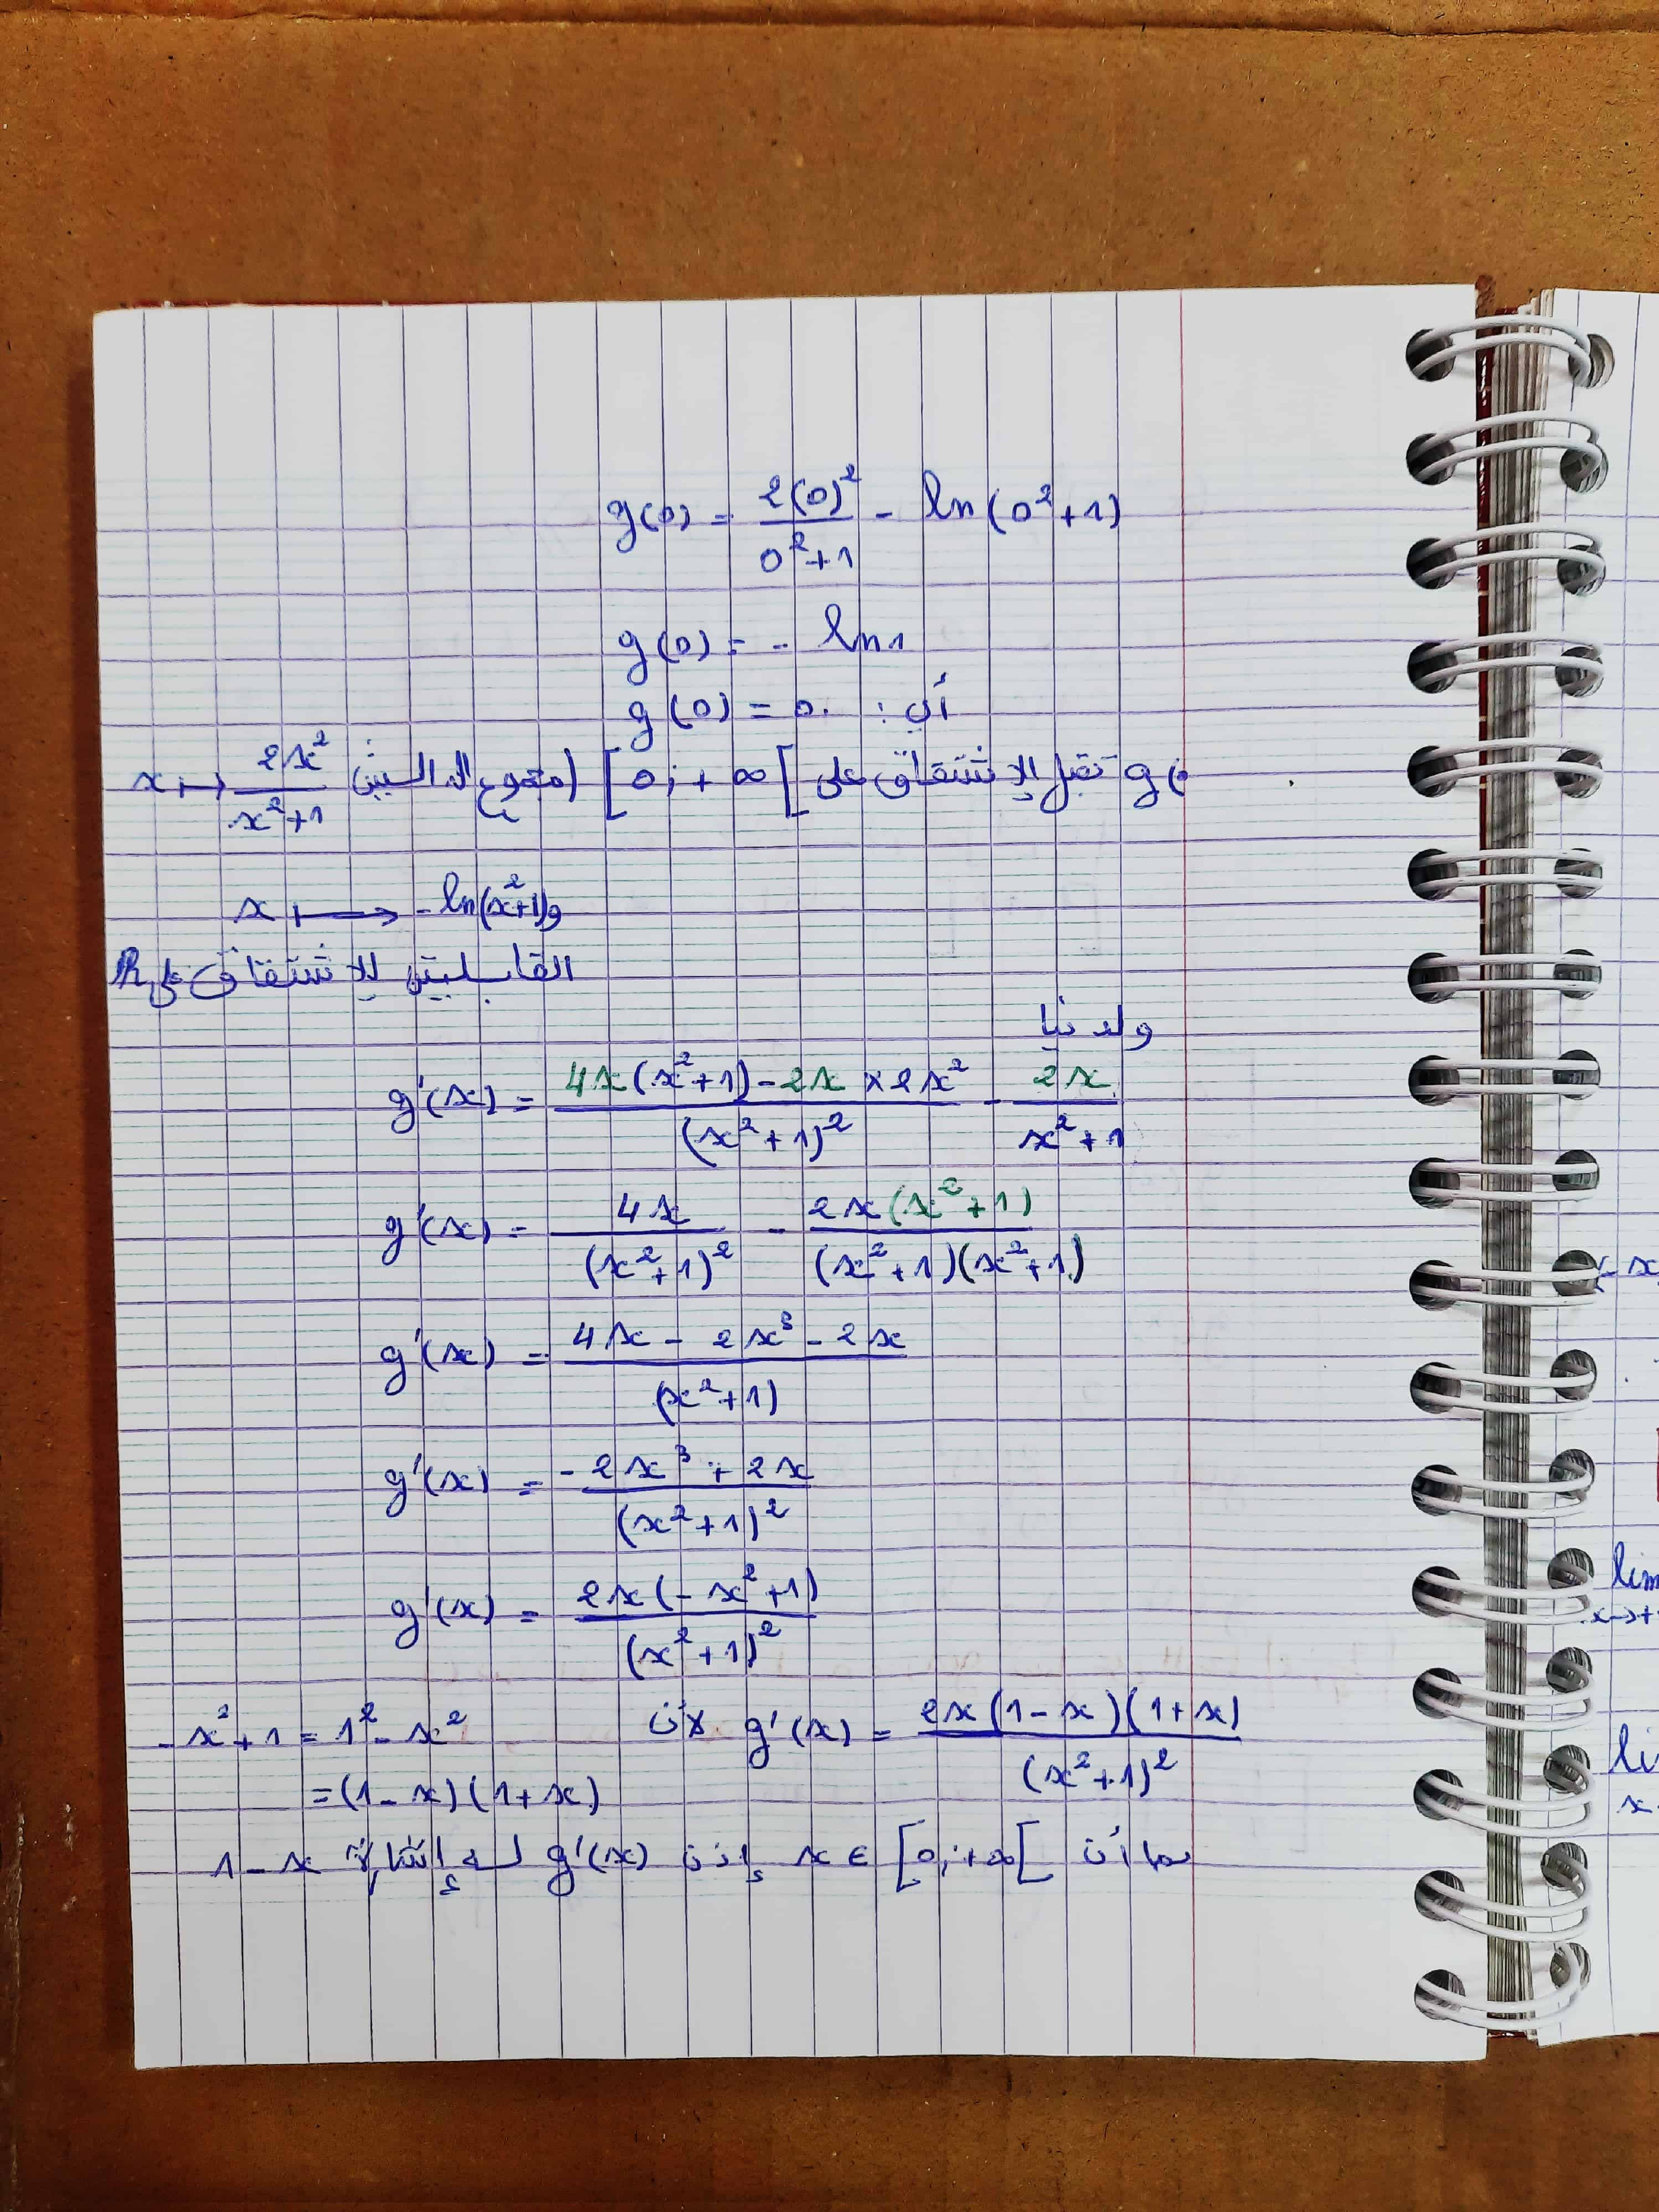 g(0) = 2(0)²/(0²+1) - ln(0²+1)
g(0) = - ln1
أي : g(0) = 0.
g تقبل الإشتقاق على [0;+∞[ (مجموع الدالتين x ↦ 2x²/(x²+1)
و x ↦ -ln(x²+1)
القابليتين للإشتقاق على ℝ
ولدينا
g'(x) = (4x(x²+1) - 2x × 2x²)/(x²+1)² - 2x/(x²+1)
g'(x) = 4x/(x²+1)² - 2x(x²+1)/((x²+1)(x²+1))
g'(x) = (4x - 2x³ - 2x)/(x²+1)
g'(x) = (-2x³ + 2x)/(x²+1)²
g'(x) = 2x(-x²+1)/(x²+1)²
g'(x) = 2x(1-x)(1+x)/(x²+1)² لأن -x²+1 = 1² - x²
= (1-x)(1+x)
بما أن x ∈ [0;+∞[ إذن g'(x) له إشارة 1-x
lim
x→+
li
x